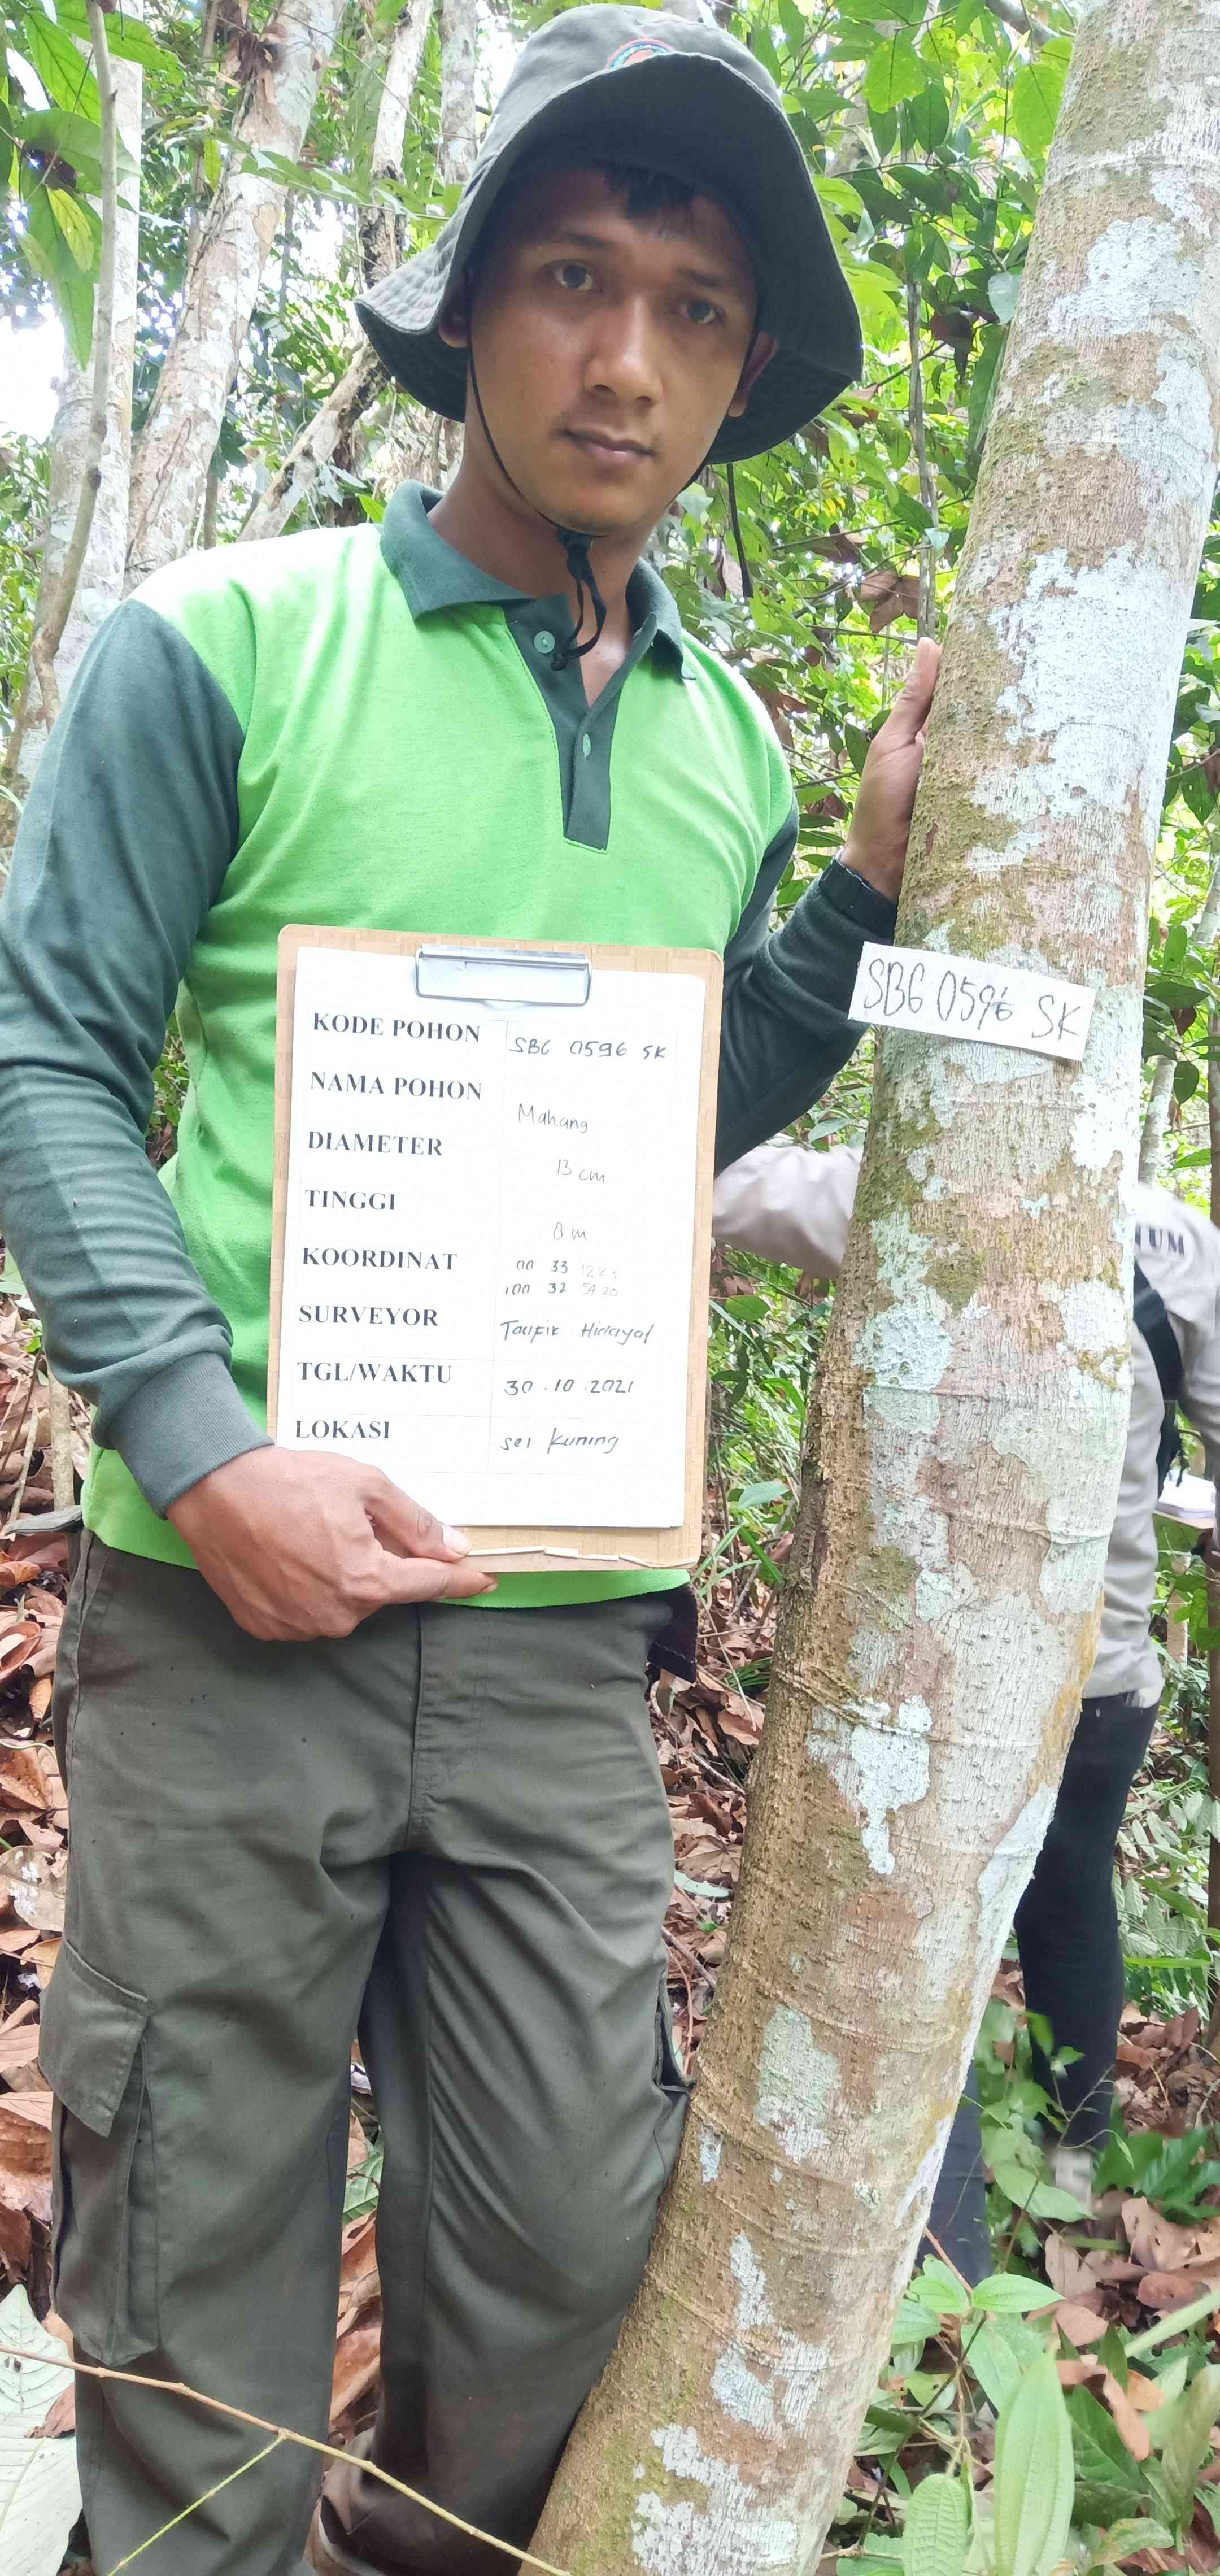 KODE POHON SBG 0596 SK
NAMA POHON Mahang
DIAMETER 13 cm
TINGGI 8 m
KOORDINAT 00 33 12.23
100 32 54.20
SURVEYOR Taufik Hidayat
TGL/WAKTU 30.10.2021
LOKASI sei kuning
SBG 0596 SK
TUM